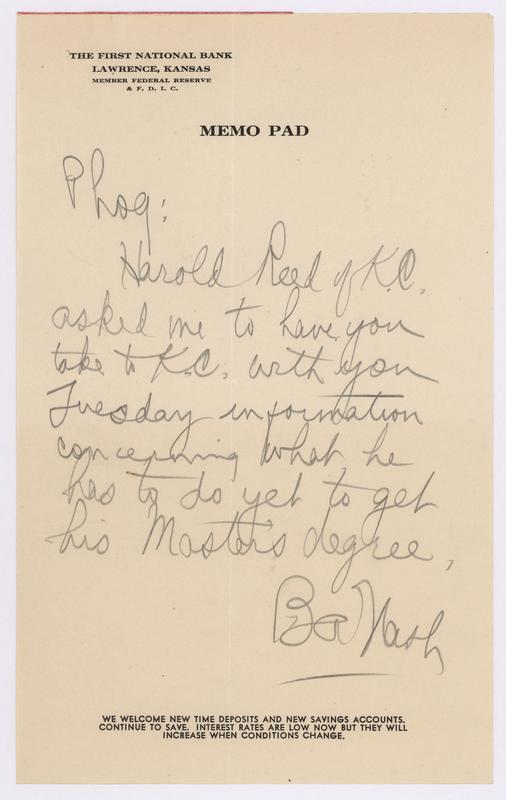 THE FIRST NATIONAL BANK
LAWRENCE, KANSAS
MEMBER FEDERAL RESERVE
& F. D. I. C.
MEMO PAD
Phog:
Harold Reed of K.C.
asked me to have you
take to K.C. with you
Tuesday information
concerning what he
has to do yet to get
his Master's degree,
Ed Nash
WE WELCOME NEW TIME DEPOSITS AND NEW SAVINGS ACCOUNTS.
CONTINUE TO SAVE. INTEREST RATES ARE LOW NOW BUT THEY WILL
INCREASE WHEN CONDITIONS CHANGE.